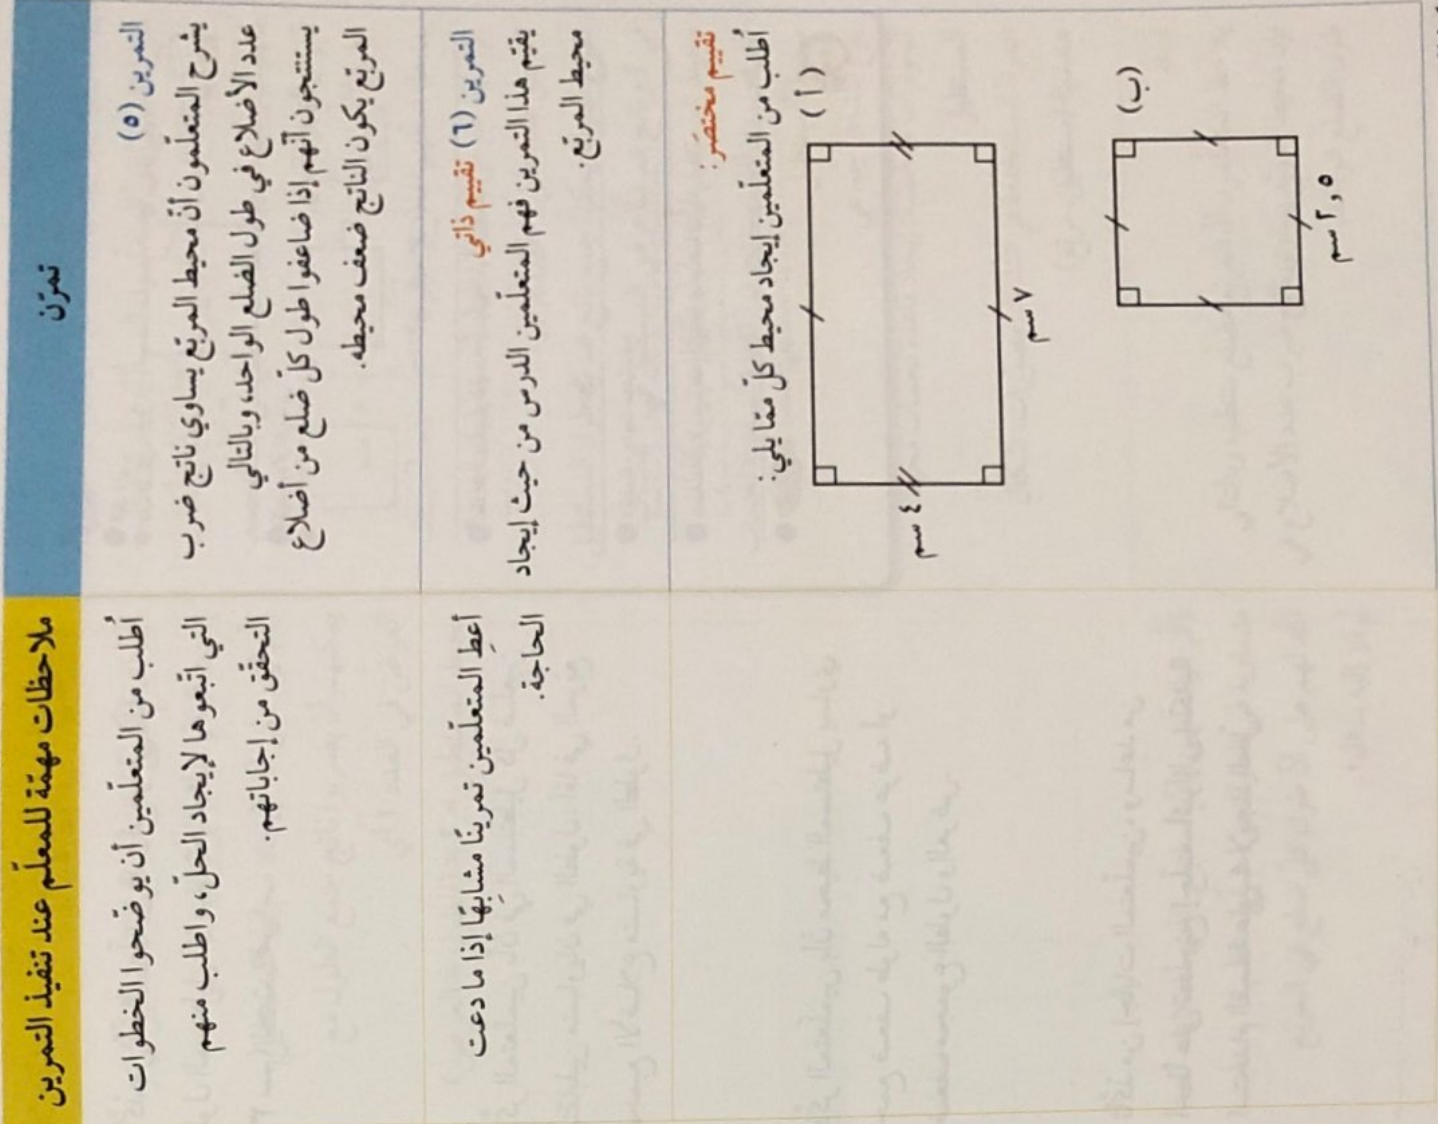 تمرّن
ملاحظات مهمّة للمعلّم عند تنفيذ التمرين
التمرين (٥)
يشرح المتعلّمون أنّ محيط المربّع يساوي ناتج ضرب
عدد الأضلاع في طول الضلع الواحد، وبالتالي
يستنتجون أنّهم إذا ضاعفوا طول كلّ ضلع من أضلاع
المربّع يكون الناتج ضعف محيطه.
أُطلب من المتعلّمين أن يوضّحوا الخطوات
التي اتّبعوها لإيجاد الحلّ، واطلب منهم
التحقّق من إجاباتهم.
التمرين (٦) تقييم ذاتي
يقيّم هذا التمرين فهم المتعلّمين الدرس من حيث إيجاد
محيط المربّع.
أعطِ المتعلّمين تمرينًا مشابهًا إذا ما دعت
الحاجة.
تقييم مختصَر:
أُطلب من المتعلّمين إيجاد محيط كلّ ممّا يلي:
(أ)
٤ سم
٧ سم
(ب)
٢,٥ سم